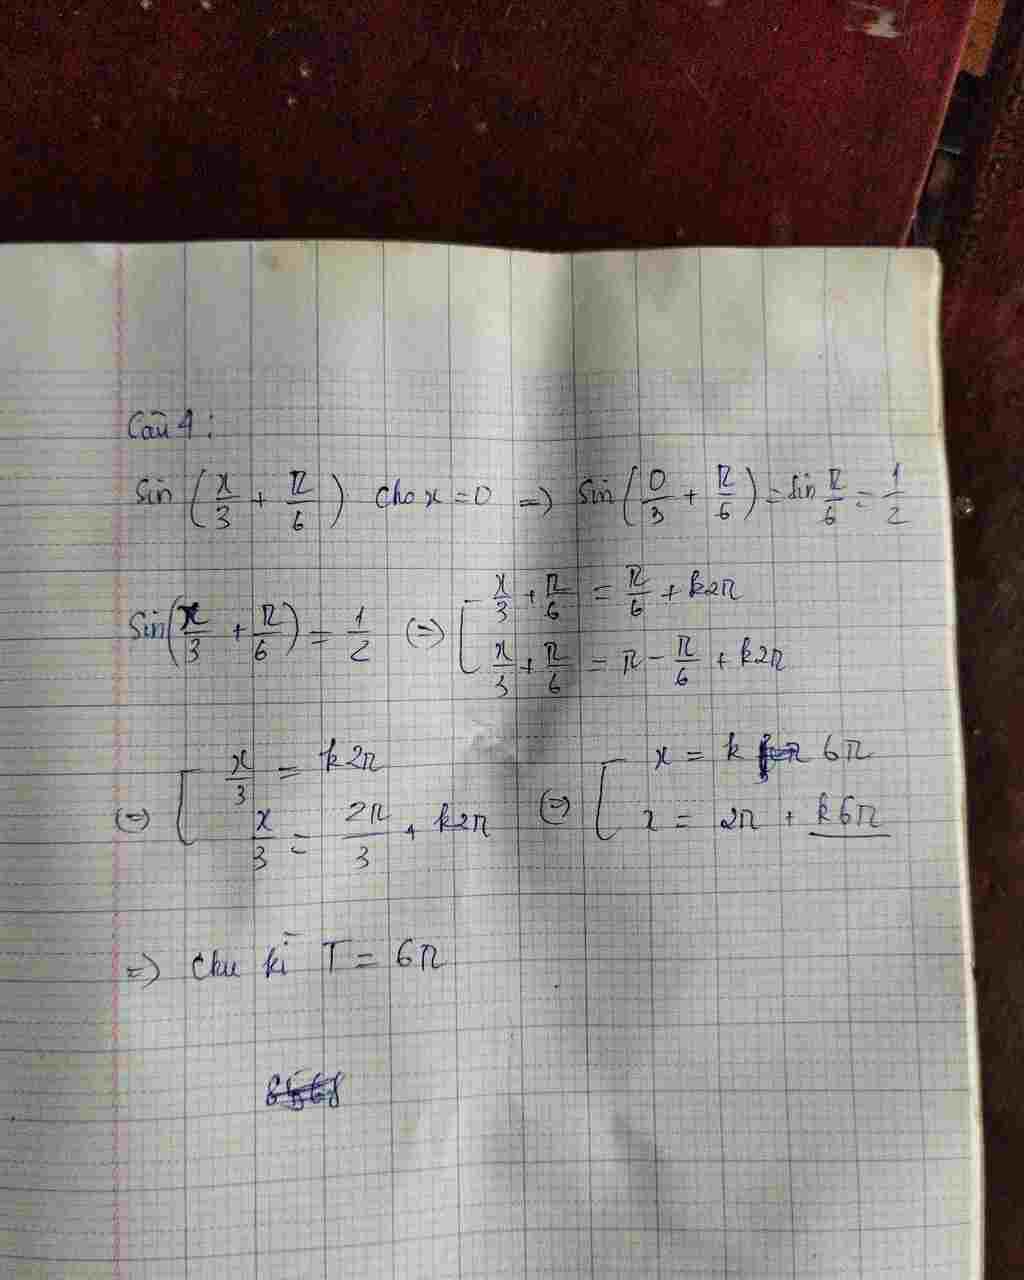 Câu 4 :
Sin (x/3 + π/6) Cho x = 0 => Sin (0/3 + π/6) = Sin π/6 = 1/2
Sin (x/3 + π/6) = 1/2 (=) [ x/3 + π/6 = π/6 + k2π
x/3 + π/6 = π - π/6 + k2π
(=) [ x/3 = k2π (=) [ x = k 6π
x/3 = 2π/3 + k2π x = 2π + k6π
=) Chu kì T = 6π